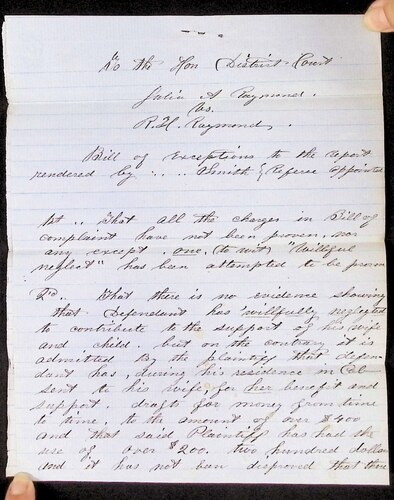 To the Hon District Court
Julia A Raymond.
vs.
R. H. Raymond,
Bill of Exceptions to the report
rendered by .. .. Smith Referee Appointed
1st .. That all the charges in Bill of
complaint have not been proven, nor
any except. one, (to wit) "Willful
neglect" has been attempted to be proven
2d That there is no evidence showing
that Defendant has willfully neglected
to contribute to the support of his wife
and child. but on the contrary it is
admitted by the plaintiff that defen-
dant has, during his residence in Col-
sent to his wife, for her benefit and
support. drafts for money from time
to time, to the amount of over $400
and that said Plaintiff has had the
use of over $200. two hundred dollars
and it has not been disproved that there